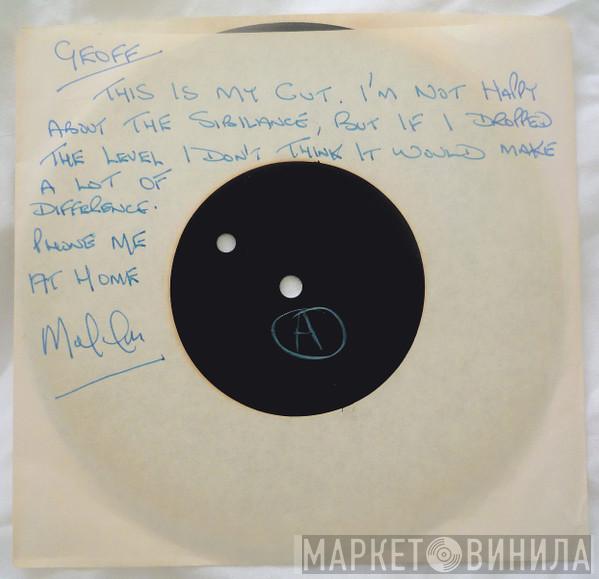 GEOFF
THIS IS MY CUT. I'M NOT HAPPY
ABOUT THE SIBILANCE, BUT IF I DROPPED
THE LEVEL I DON'T THINK IT WOULD MAKE
A LOT OF
DIFFERENCE.
PHONE ME
AT HOME
A
МАРКЕТ ВИНИЛА